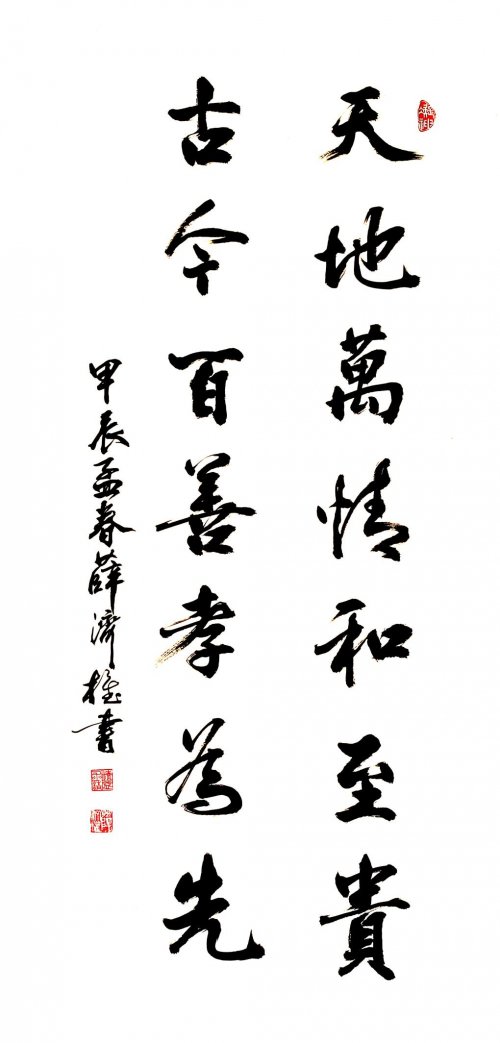 天地萬情和至貴
古今百善孝為先
甲辰孟春薛濟權書